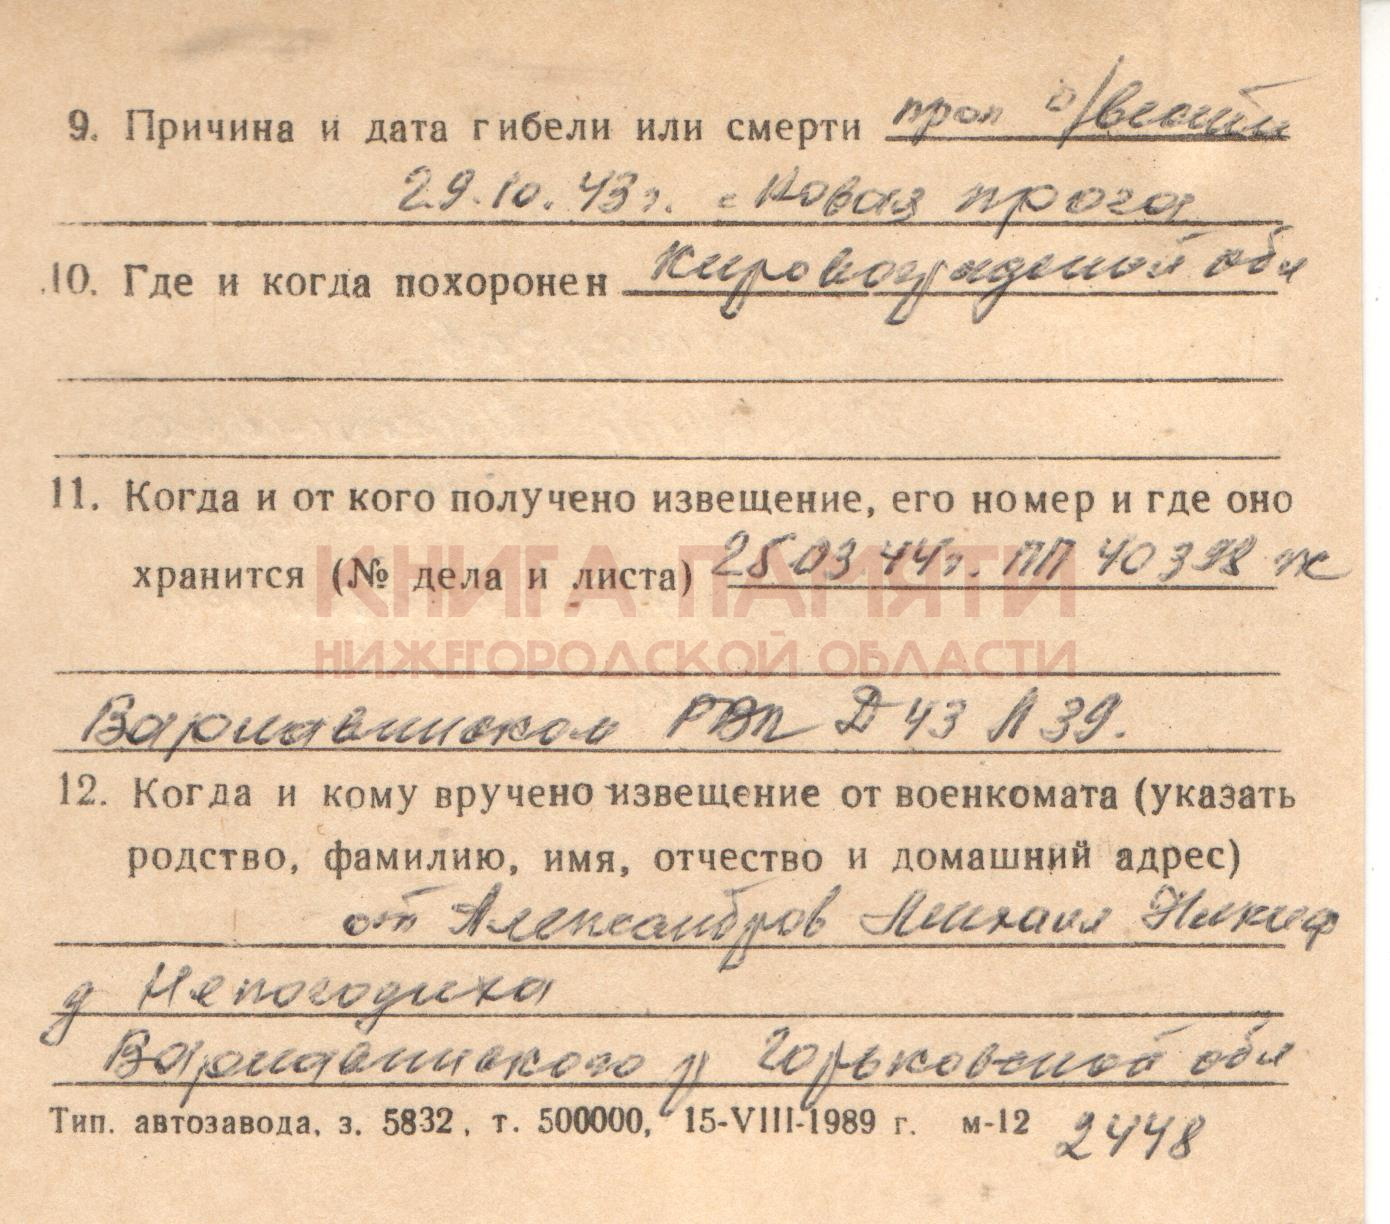 9. Причина и дата гибели или смерти проп б/вести
29.10.43г. с Новая прога
10. Где и когда похоронен Кировоградской обл
11. Когда и от кого получено извещение, его номер и где оно
хранится (№ дела и листа) 25.03 44г. ПП 40398
КНИГА ПАМЯТИ
НИЖЕГОРОДСКОЙ ОБЛАСТИ
Варнавинском Д 43 Л 39.
12. Когда и кому вручено извещение от военкомата (указать
родство, фамилию, имя, отчество и домашний адрес)
от Александров Михаил Никиф
д Непогодиха
Варнавинского р Горьковской обл
Тип. автозавода, з. 5832, т. 500000, 15-VIII-1989 г. м-12 2448